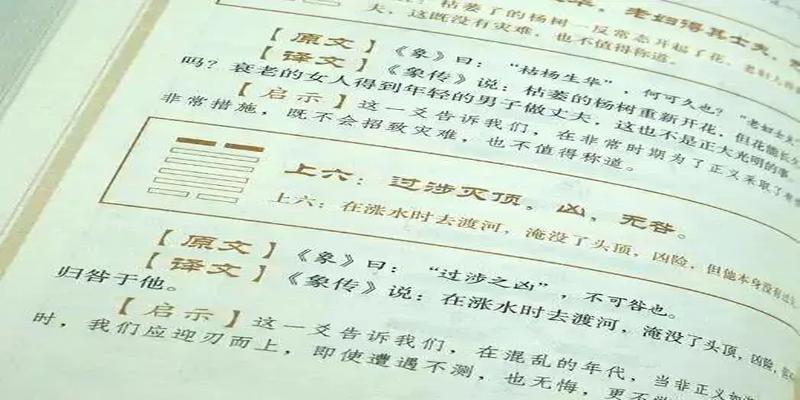 枯萎了的杨树一反常态开起了花，老妇
夫，这既没有灾难，也不值得称道。
【原文】《象》曰：“枯杨生华”，何可久也？“老妇士夫”
【译文】《象传》说：枯萎的杨树重新开花，但花能长久
吗？衰老的女人得到年轻的男子做丈夫，这也不是正大光明的事。
【启示】这一爻告诉我们，在非常时期为了正义采取了
非常措施，既不会招致灾难，也不值得称道。
上六：过涉灭顶，凶，无咎。
上六：在涨水时去渡河，淹没了头顶，凶险，但他本身没有
【原文】《象》曰：“过涉之凶”，不可咎也。
【译文】《象传》说：在涨水时去渡河，淹没了头顶，凶险，
归咎于他。
【启示】这一爻告诉我们，在混乱的年代，当非正义如
时，我们应迎刃而上，即使遭遇不测，也无悔，更不